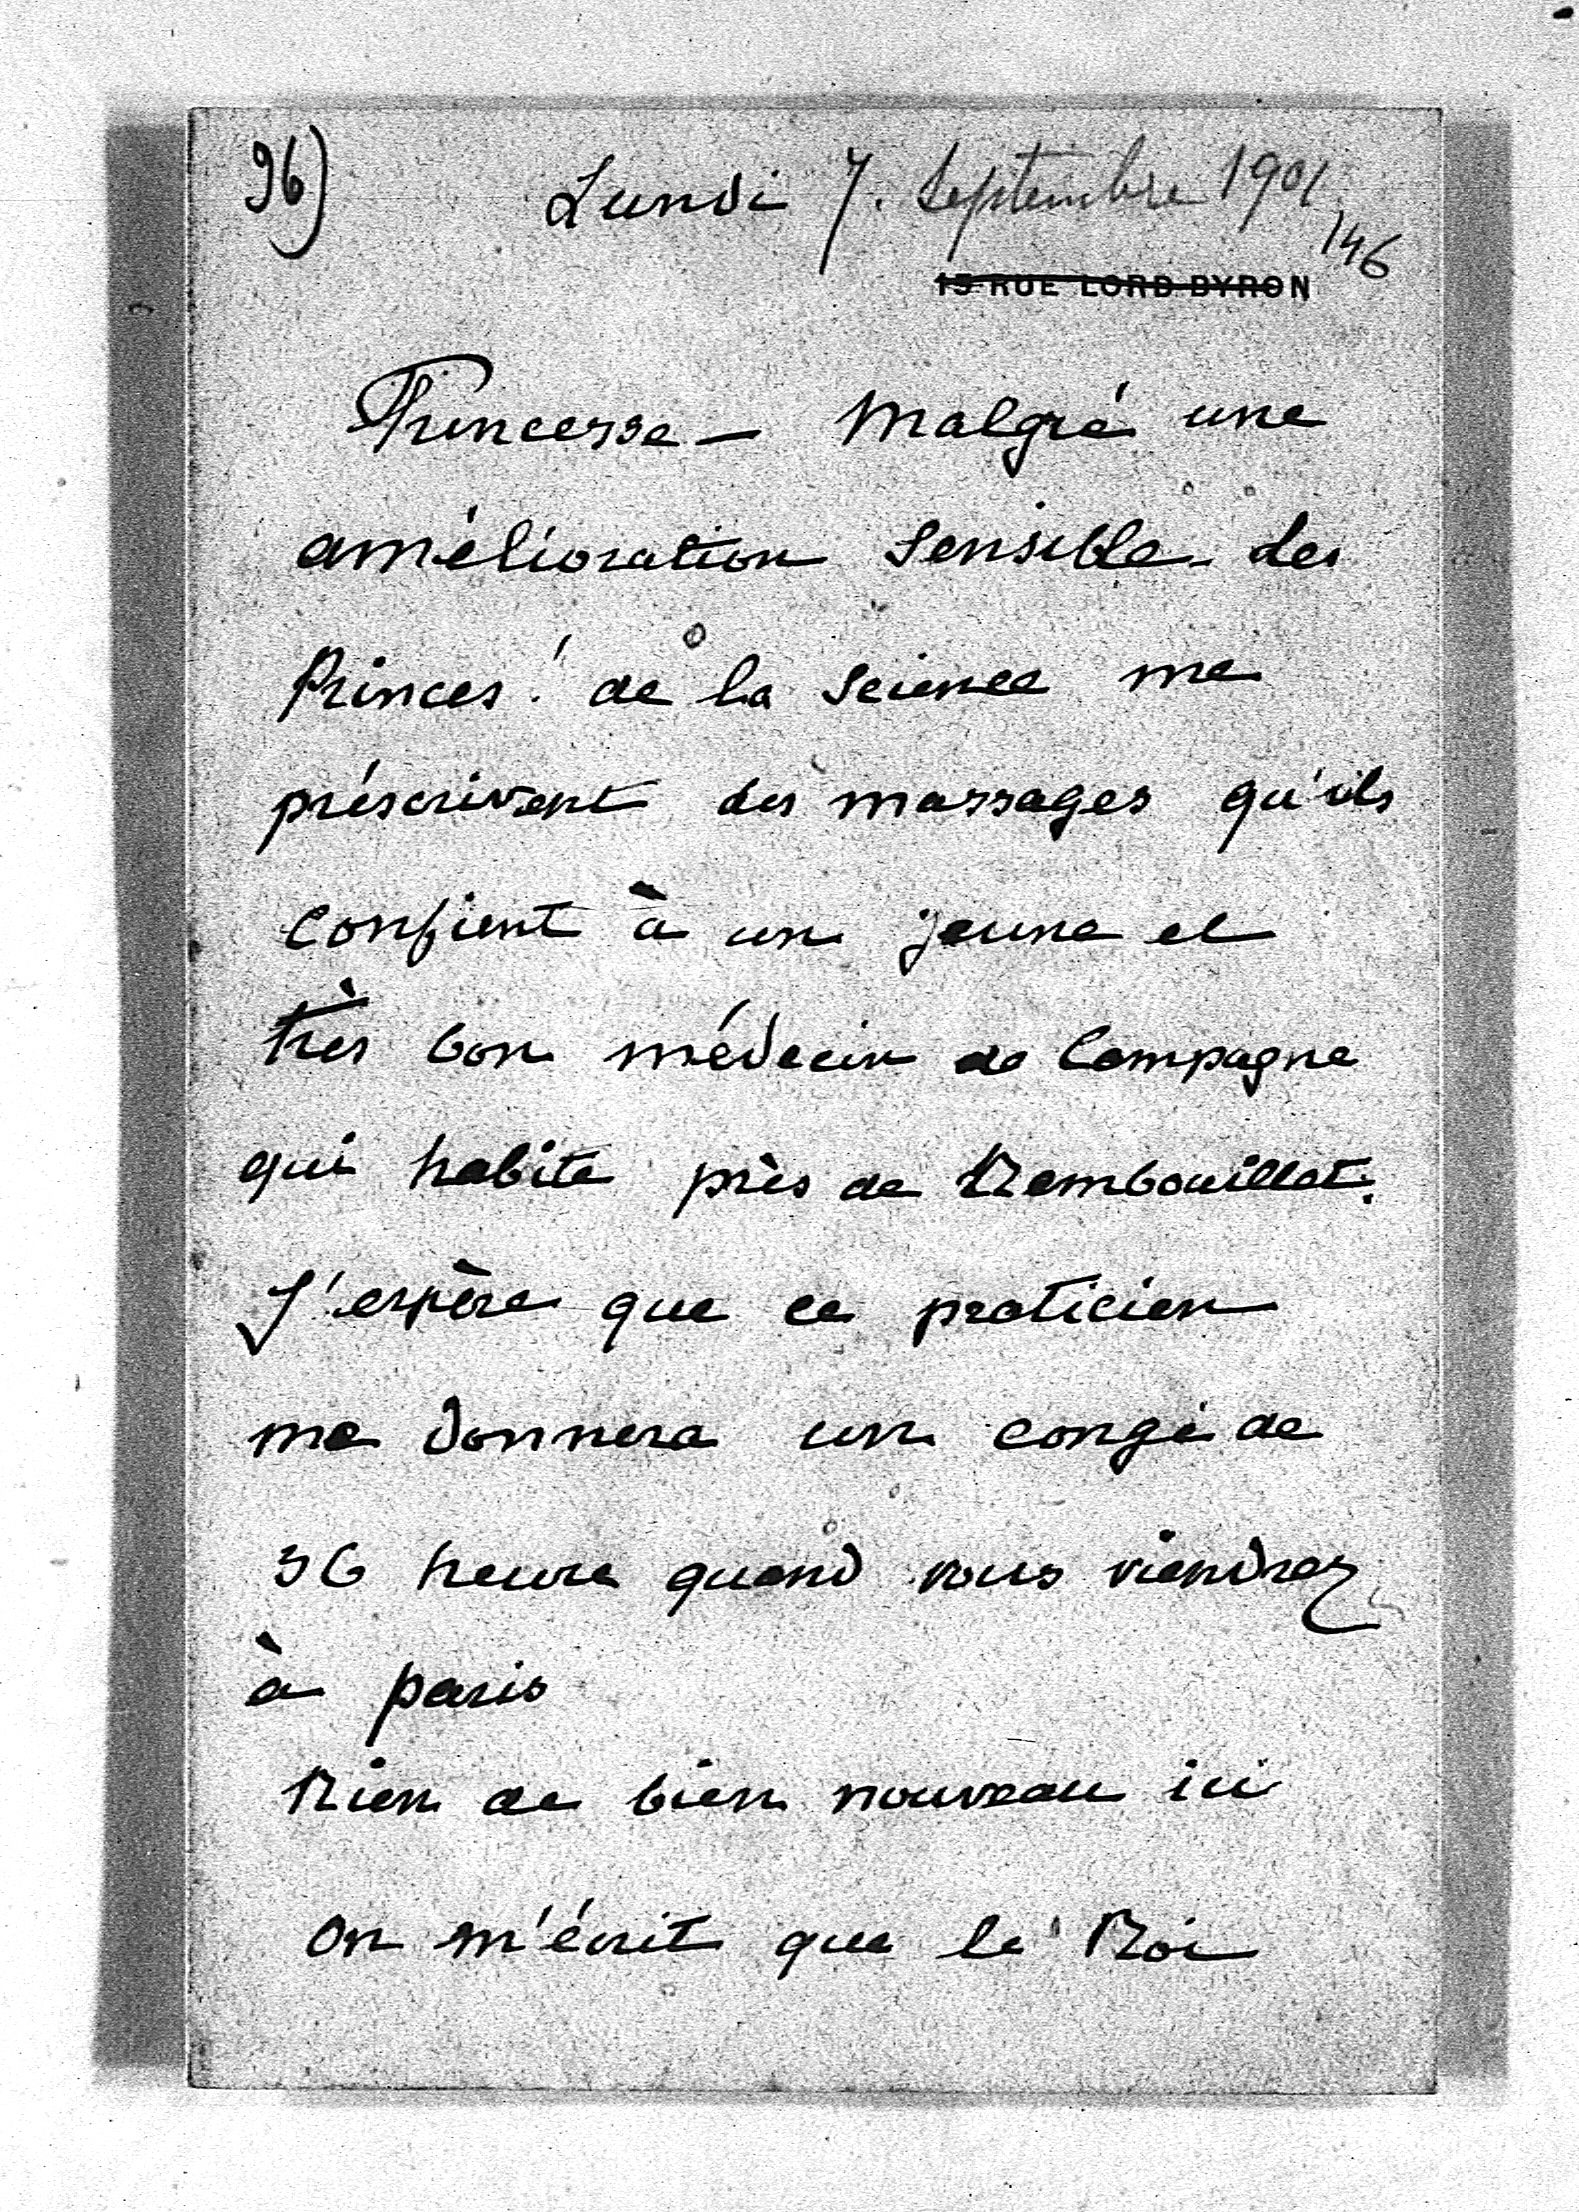 96)
Lundi 7. Septembre 1901
146
15 RUE LORD BYRON
Princesse — Malgré une
amélioration sensible des
Princes! de la science me
préscrivent des massages qu'ils
confient à un jeune et
très bon médecin de Campagne
qui habite près de Rambouillet.
J'espère que ce praticien
me donnera un congé de
36 heures quand vous viendrez
à paris
Rien de bien nouveau ici
On m'écrit que le Roi